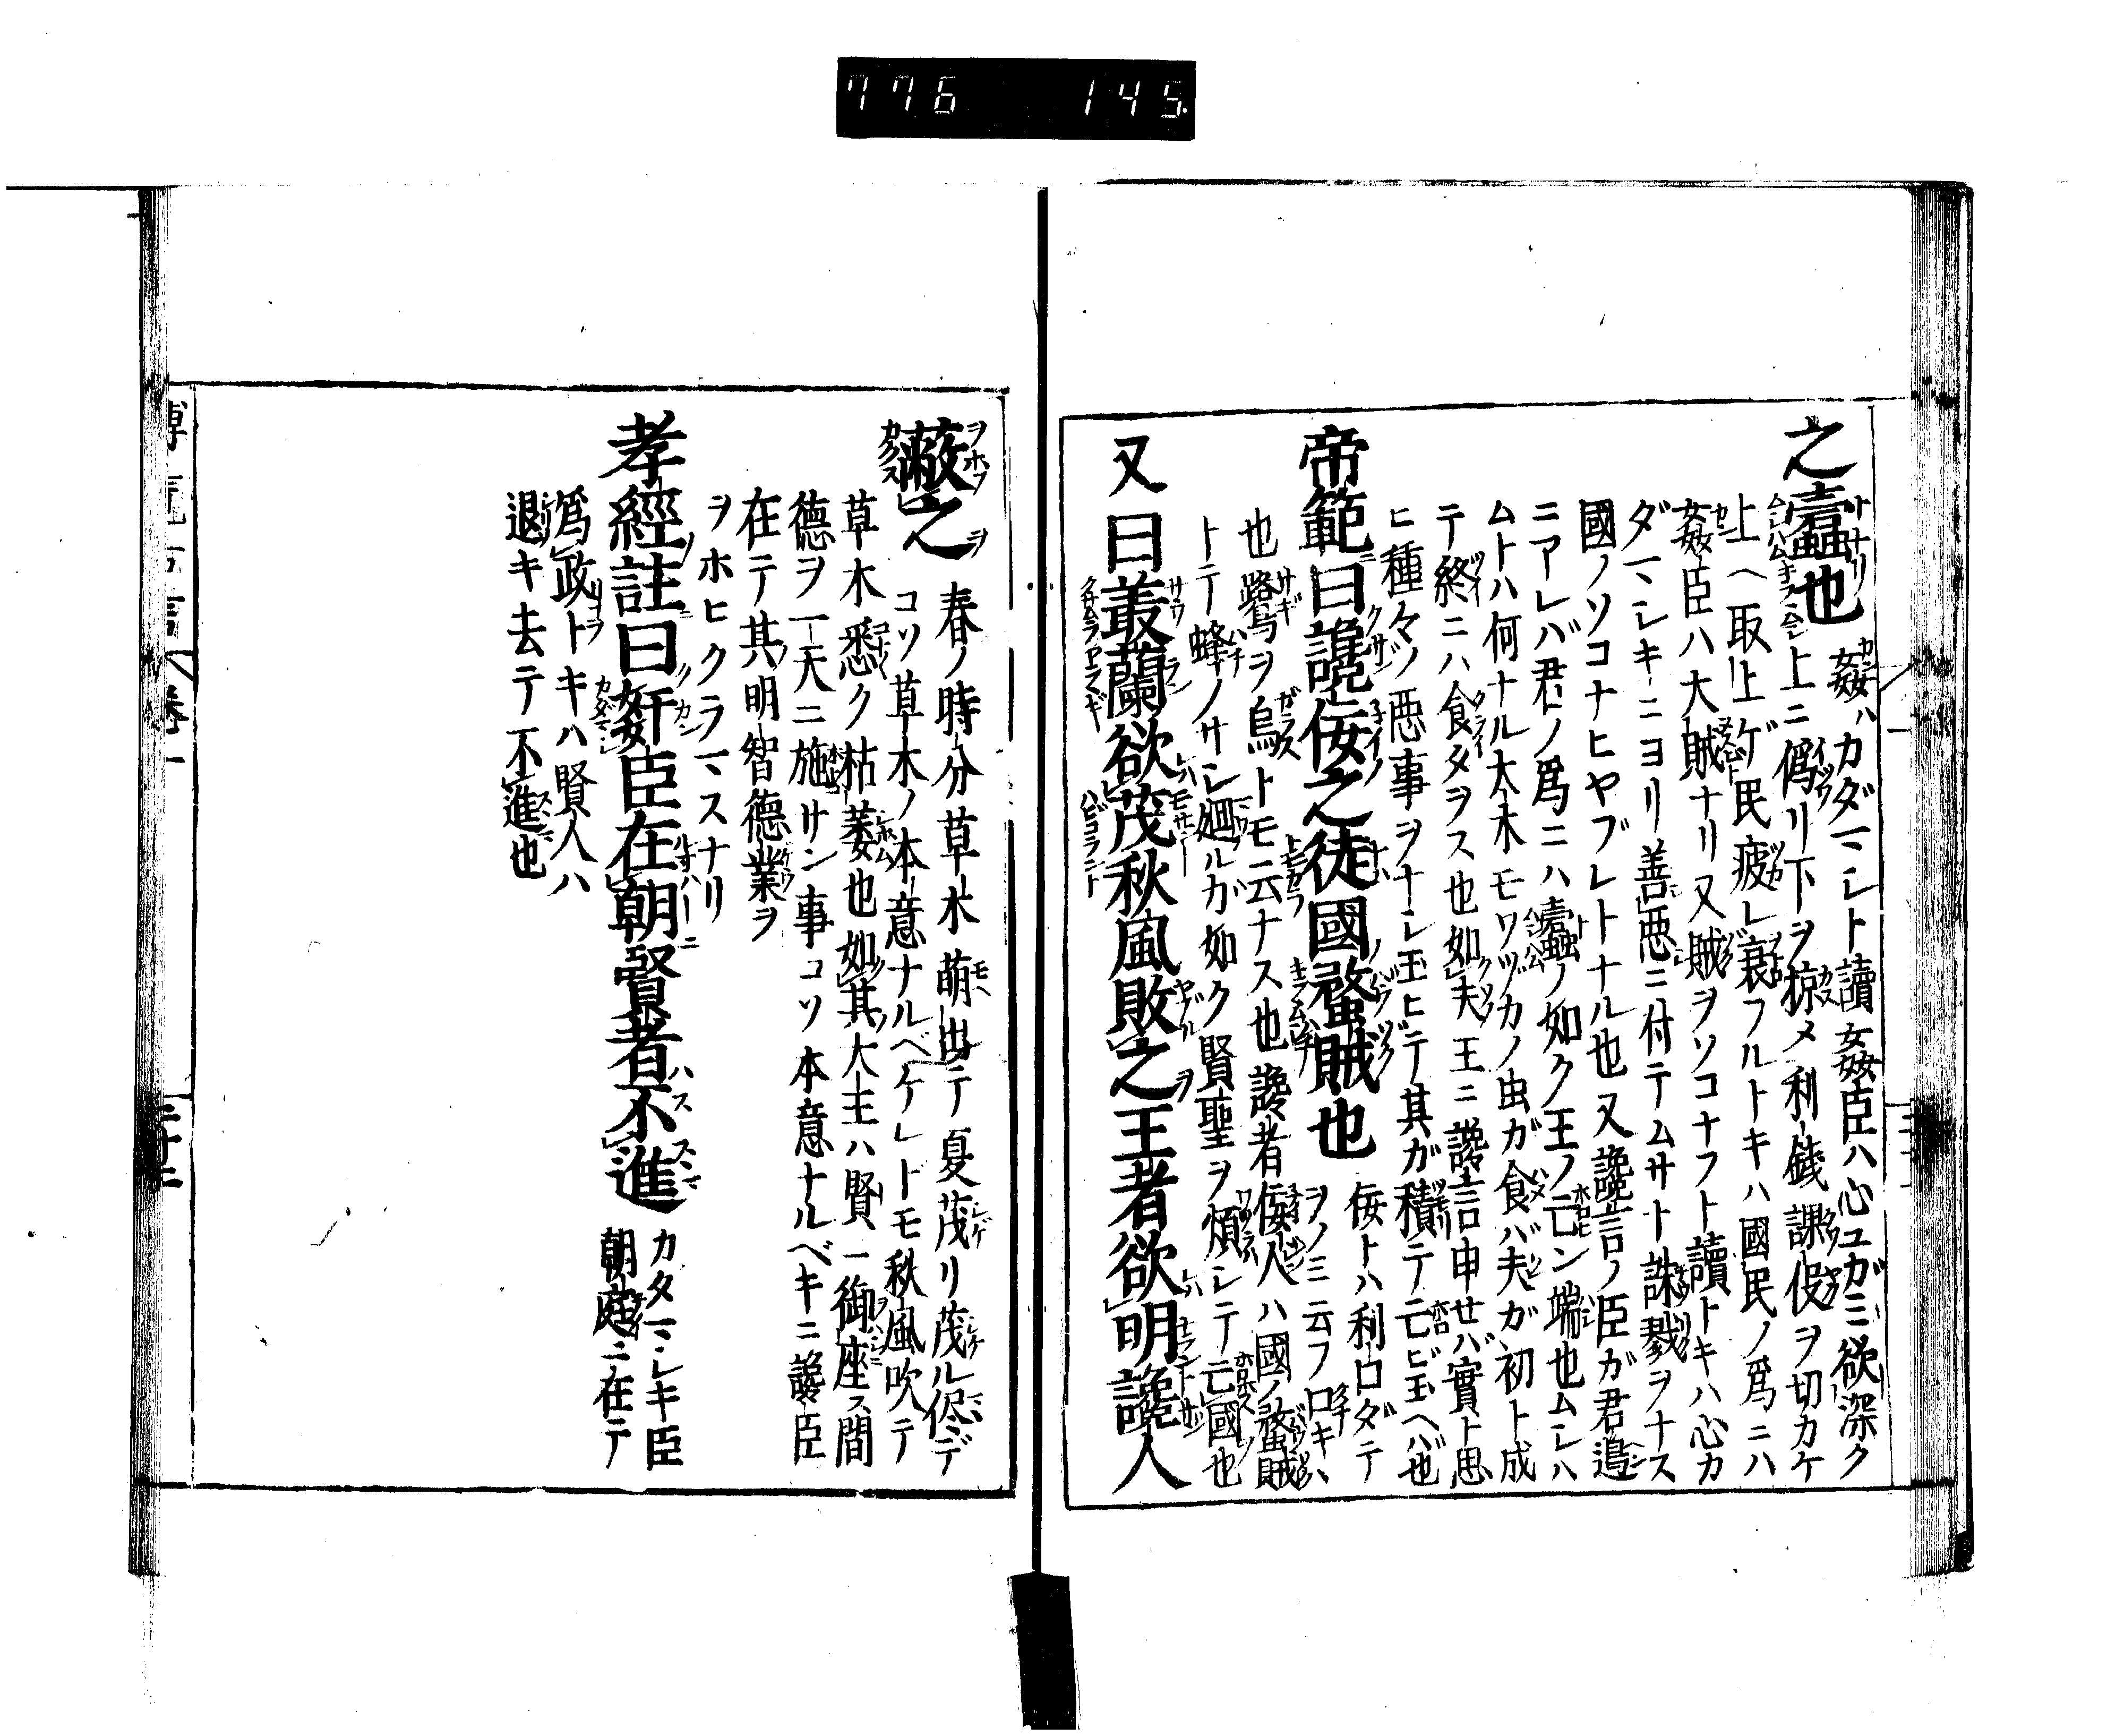 776 145
之蠹也
姦ハカダマシト讀姦臣ハ心ユガミ欲深ク
上ニ僞リ下ヲ掠メ利錢課役ヲ切カケ
上ヘ取上ゲ民疲レ衰フルトキハ國民ノ爲ニハ
姦臣ハ大賊ナリ又賊ヲソコナフト讀トキハ心カ
ダマシキニヨリ善惡ニ付テムサト誅戮ヲナス
國ノソコナヒヤブレトナル也又讒言ノ臣ガ君邊
ニアレバ君ノ爲ニハ蠹蟲ノ如ク王ノ亡ン端也ムシハ
ムトハ何ナル大木モワヅカノ虫ガ食バ夫ガ初ト成
テ終ニハ食タヲス也如夫王ニ讒言申セバ實ト思
ヒ種々ノ惡事ヲナシ玉ヒテ其ガ積テ亡ビ玉ヘバ也
帝範曰讒佞之徒國蝥賊也
佞トハ利口ダテ
ヲノミ云フ口キハ
也鷺ヲ烏トモ云ナス也讒者佞人ハ國ノ蝥賊
トテ蜂ノサシ廻ルガ如ク賢聖ヲ煩シテ亡國也
又曰叢蘭欲茂秋風敗之王者欲明讒人
蔽之
春ノ時分草木萠出テ夏茂リ茂ル侭デ
コソ草木ノ本意ナルベケレトモ秋風吹テ
草木悉ク枯萎也如其大王ハ賢一御座ス間
德ヲ一天ニ施サン事コソ本意ナルベキニ讒臣
在テ其明智德業ヲ
ヲホヒクラマスナリ
孝經註曰姧臣在朝賢者不進
カタマシキ臣
朝庭ニ在テ
爲政トキハ賢人ハ
退キ去テ不進也
卷一